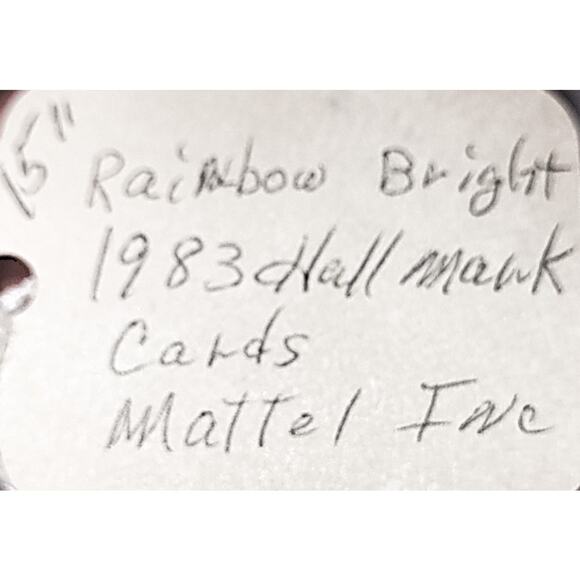 15"
Rainbow Bright
1983 Hallmark
Cards
Mattel Inc